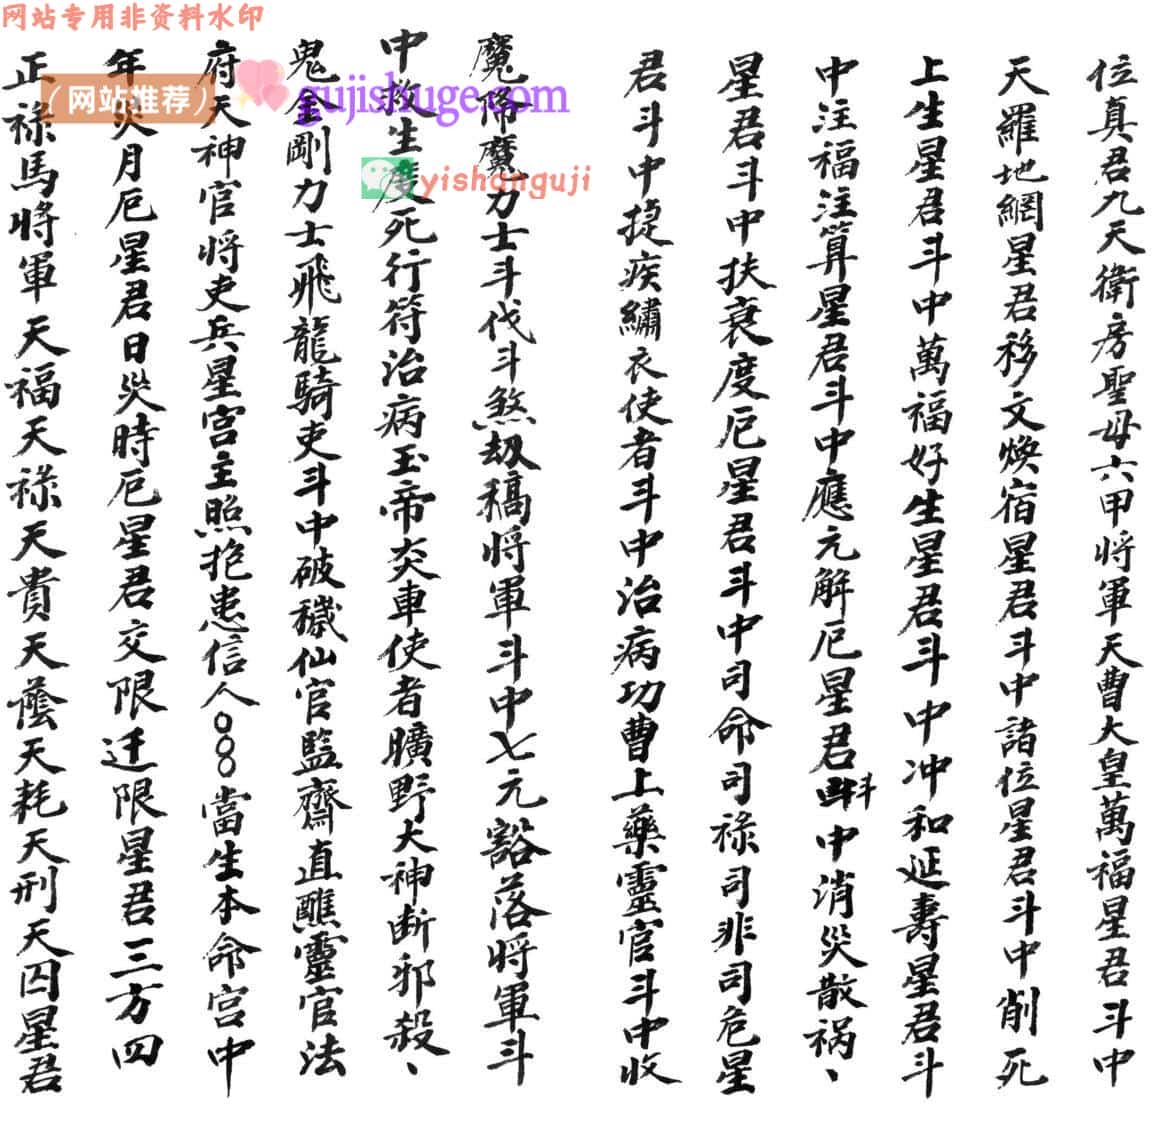 网站专用非资料水印
（网站推荐）
gujishuge.com
yishanguji
位真君九天衛房聖母六甲将軍天曹大皇萬福星君斗中
天羅地網星君移文煥宿星君斗中諸位星君斗中削死
上生星君斗中萬福好生星君斗中冲和延壽星君斗
中注福注算星君斗中應元解厄星君斗中消災散祸、
星君斗中扶衰度厄星君斗中司命司祿司非司危星
君斗中捷疾繡衣使者斗中治病功曹上藥靈官斗中收
魔降魔力士斗伐斗煞劫稿将軍斗中七元豁落将軍斗
中救生度死行符治病玉帝炎車使者曠野大神断邪殺、
鬼金剛力士飛龍騎吏斗中破穢仙官監齋直醮靈官法
府天神官将吏兵星宫主照抱患信人○○○當生本命宫中
年災月厄星君日災時厄星君交限迁限星君三方四
正祿馬将軍天福天祿天貴天蔭天耗天刑天囚星君